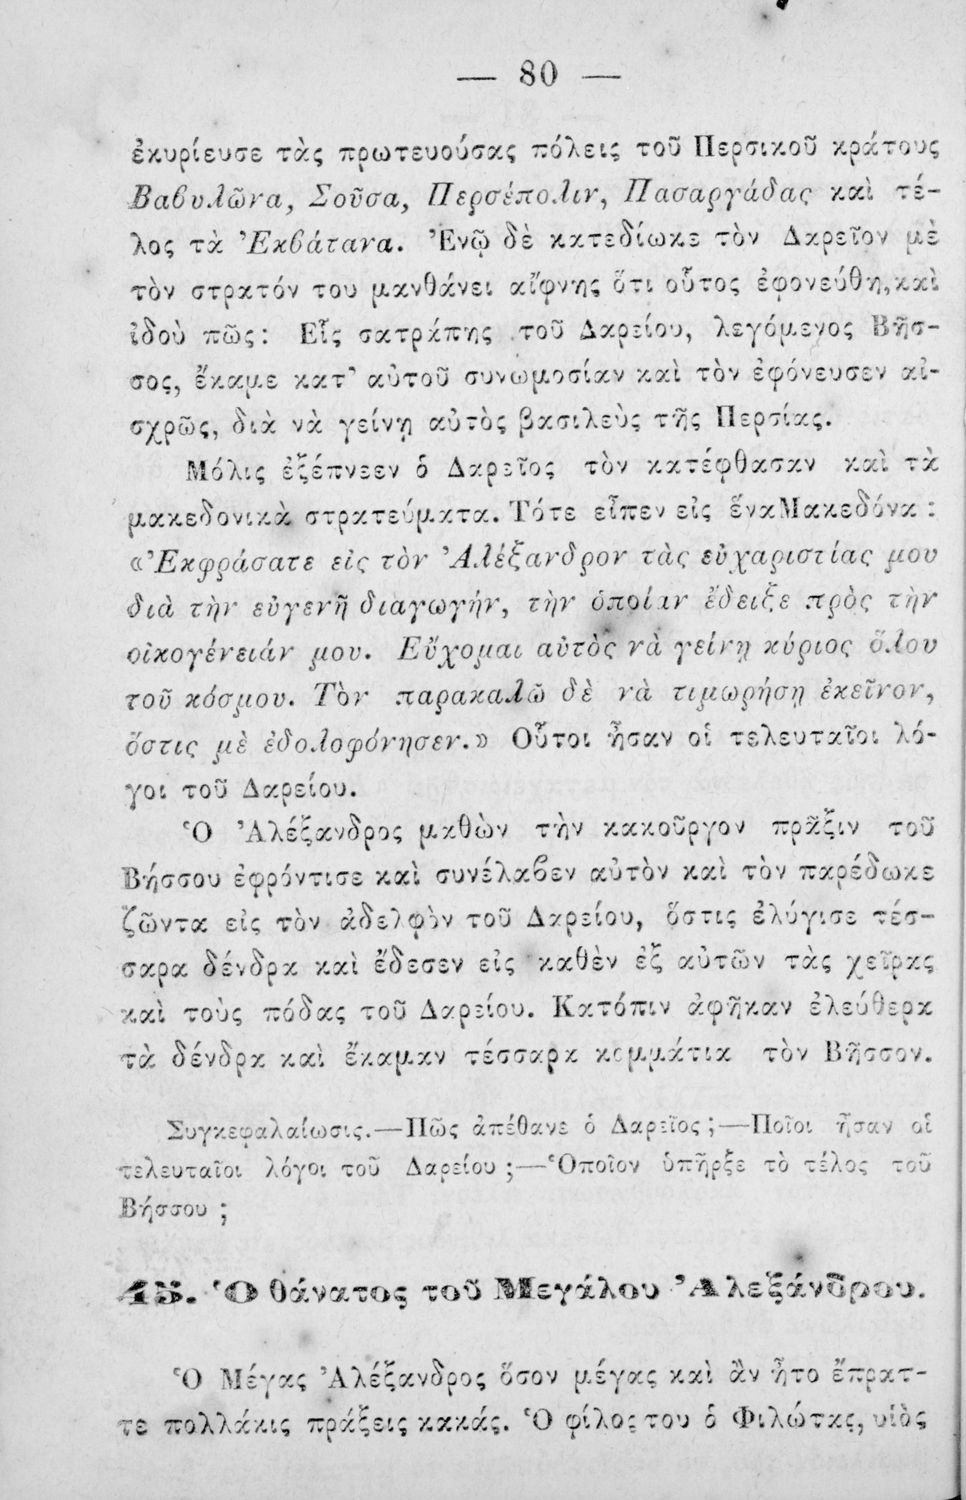 — 80 —
ἐκυρίευσε τὰς πρωτευούσας πόλεις τοῦ Περσικοῦ κράτους
Βαβυλῶνα, Σοῦσα, Περσέπολιν, Πασαργάδας καὶ τέ-
λος τὰ Ἐκβάτανα. Ἐνῷ δὲ κατεδίωκε τὸν Δαρεῖον μὲ
τὸν στρατόν του μανθάνει αἴφνης ὅτι οὗτος ἐφονεύθη, καὶ
ἰδοὺ πῶς: Εἷς σατράπης τοῦ Δαρείου, λεγόμενος Βῆσ-
σος, ἔκαμε κατ' αὐτοῦ συνωμοσίαν καὶ τὸν ἐφόνευσεν αἰ-
σχρῶς, διὰ νὰ γείνῃ αὐτὸς βασιλεὺς τῆς Περσίας.
Μόλις ἐξέπνεεν ὁ Δαρεῖος τὸν κατέφθασαν καὶ τὰ
μακεδονικὰ στρατεύματα. Τότε εἶπεν εἰς ἕνα Μακεδόνα :
«Ἐκφράσατε εἰς τὸν Ἀλέξανδρον τὰς εὐχαριστίας μου
διὰ τὴν εὐγενῆ διαγωγήν, τὴν ὁποίαν ἔδειξε πρὸς τὴν
οἰκογένειάν μου. Εὔχομαι αὐτὸς νὰ γείνῃ κύριος ὅλου
τοῦ κόσμου. Τὸν παρακαλῶ δὲ νὰ τιμωρήσῃ ἐκεῖνον,
ὅστις μὲ ἐδολοφόνησεν.» Οὗτοι ἦσαν οἱ τελευταῖοι λό-
γοι τοῦ Δαρείου.
Ὁ Ἀλέξανδρος μαθὼν τὴν κακοῦργον πρᾶξιν τοῦ
Βήσσου ἐφρόντισε καὶ συνέλαβεν αὐτὸν καὶ τὸν παρέδωκε
ζῶντα εἰς τὸν ἀδελφὸν τοῦ Δαρείου, ὅστις ἐλύγισε τέσ-
σαρα δένδρα καὶ ἔδεσεν εἰς καθὲν ἐξ αὐτῶν τὰς χεῖρας
καὶ τοὺς πόδας τοῦ Δαρείου. Κατόπιν ἀφῆκαν ἐλεύθερα
τὰ δένδρα καὶ ἔκαμαν τέσσαρα κομμάτια τὸν Βῆσσον.
Συγκεφαλαίωσις.—Πῶς ἀπέθανε ὁ Δαρεῖος ;—Ποῖοι ἦσαν οἱ
τελευταῖοι λόγοι τοῦ Δαρείου ;—Ὁποῖον ὑπῆρξε τὸ τέλος τοῦ
Βήσσου ;
45. Ὁ θάνατος τοῦ Μεγάλου Ἀλεξάνδρου.
Ὁ Μέγας Ἀλέξανδρος ὅσον μέγας καὶ ἂν ἦτο ἔπρατ-
τε πολλάκις πράξεις κακάς. Ὁ φίλος του ὁ Φιλώτας, υἱὸς